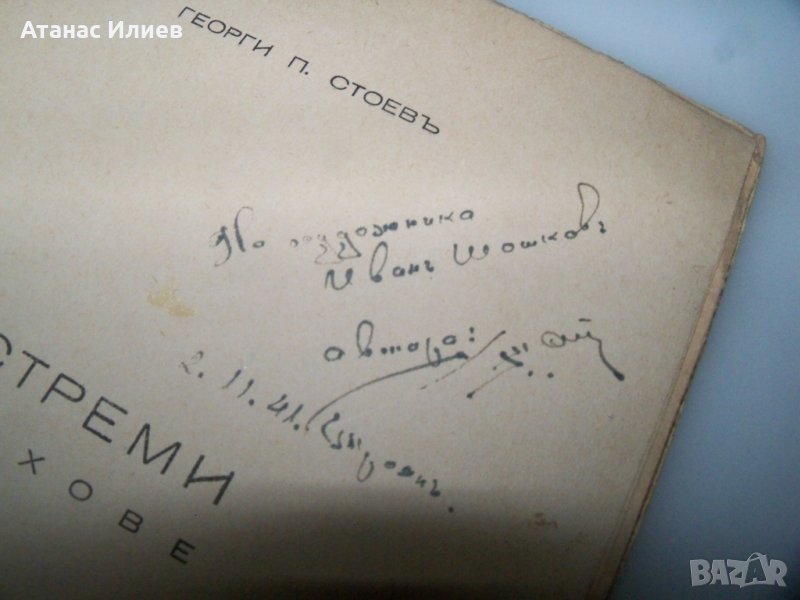 Атанас Илиев
ГЕОРГИ П. СТОЕВЪ
На художника
Иванъ Шошковъ
автора:
2. 11. 41. Троянъ.
СТРЕМИ
ХОВЕ
BAZAR